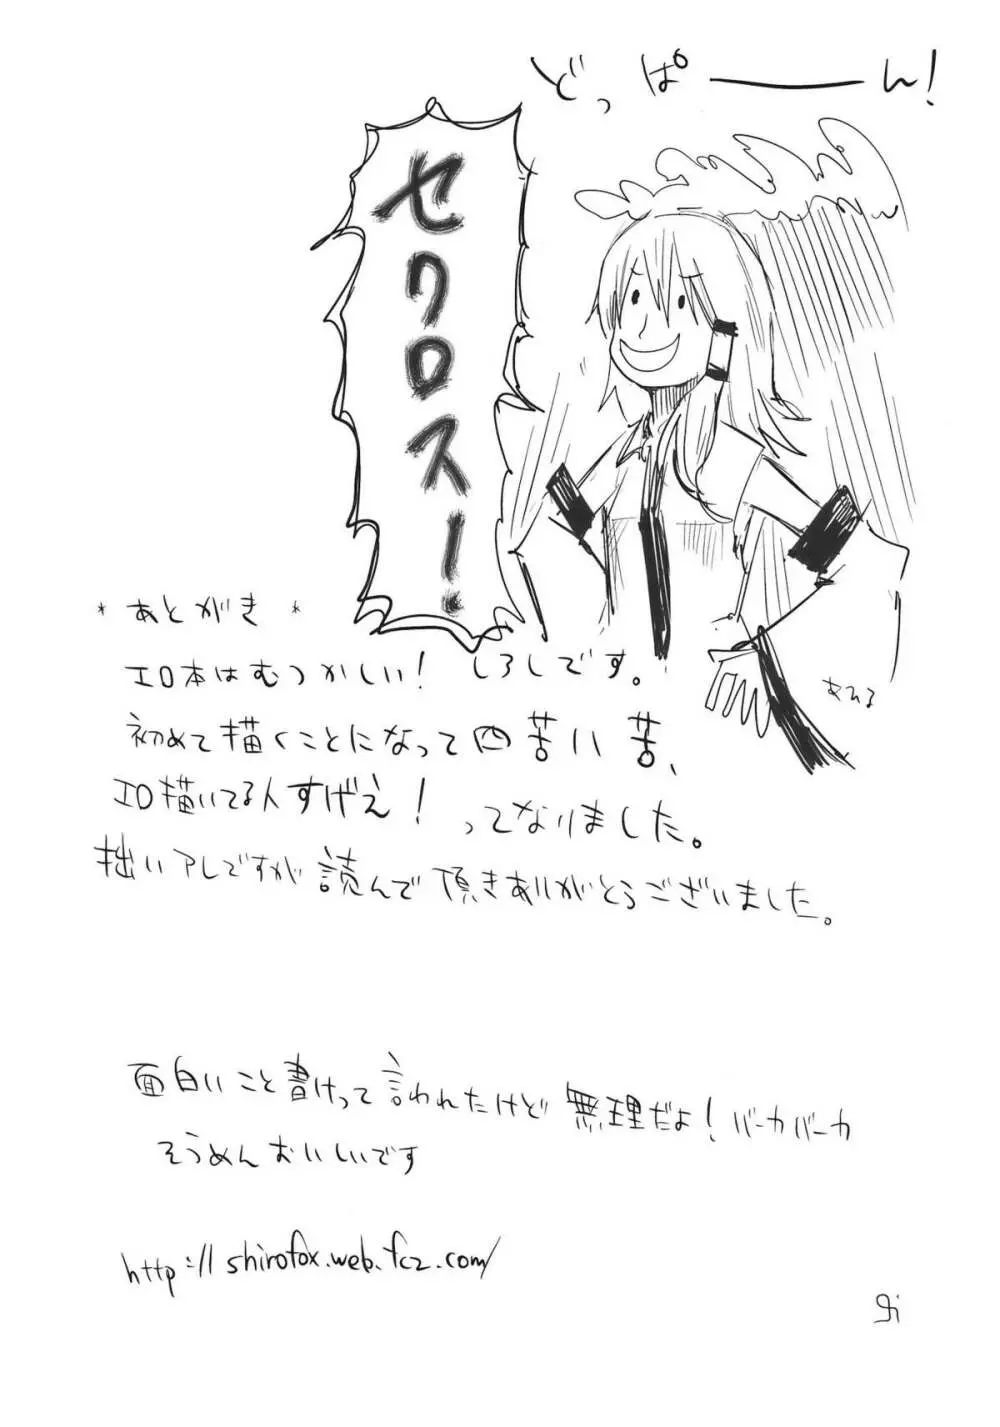 どっぱーーん！
セクロスー！
＊あとがき＊
エロ本はむつかしい！ しろしです。
初めて描くことになって四苦八苦、
エロ描いてる人すげえ！ ってなりました。
拙いアレですが読んで頂きありがとうございました。
面白いこと書けって言われたけど無理だよ！バーカバーカ
そうめんおいしいです
http://shirofox.web.fc2.com/